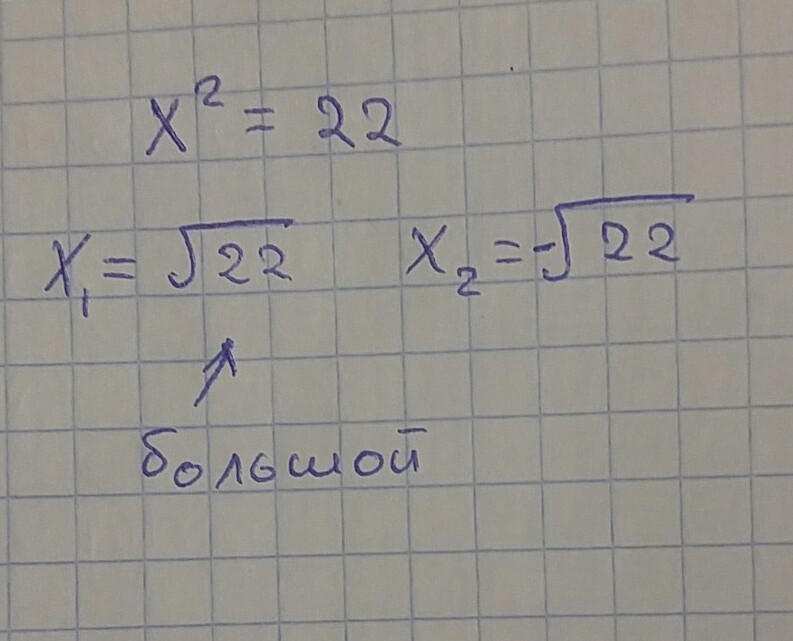 x² = 22
x₁ = √22 x₂ = -√22
большой